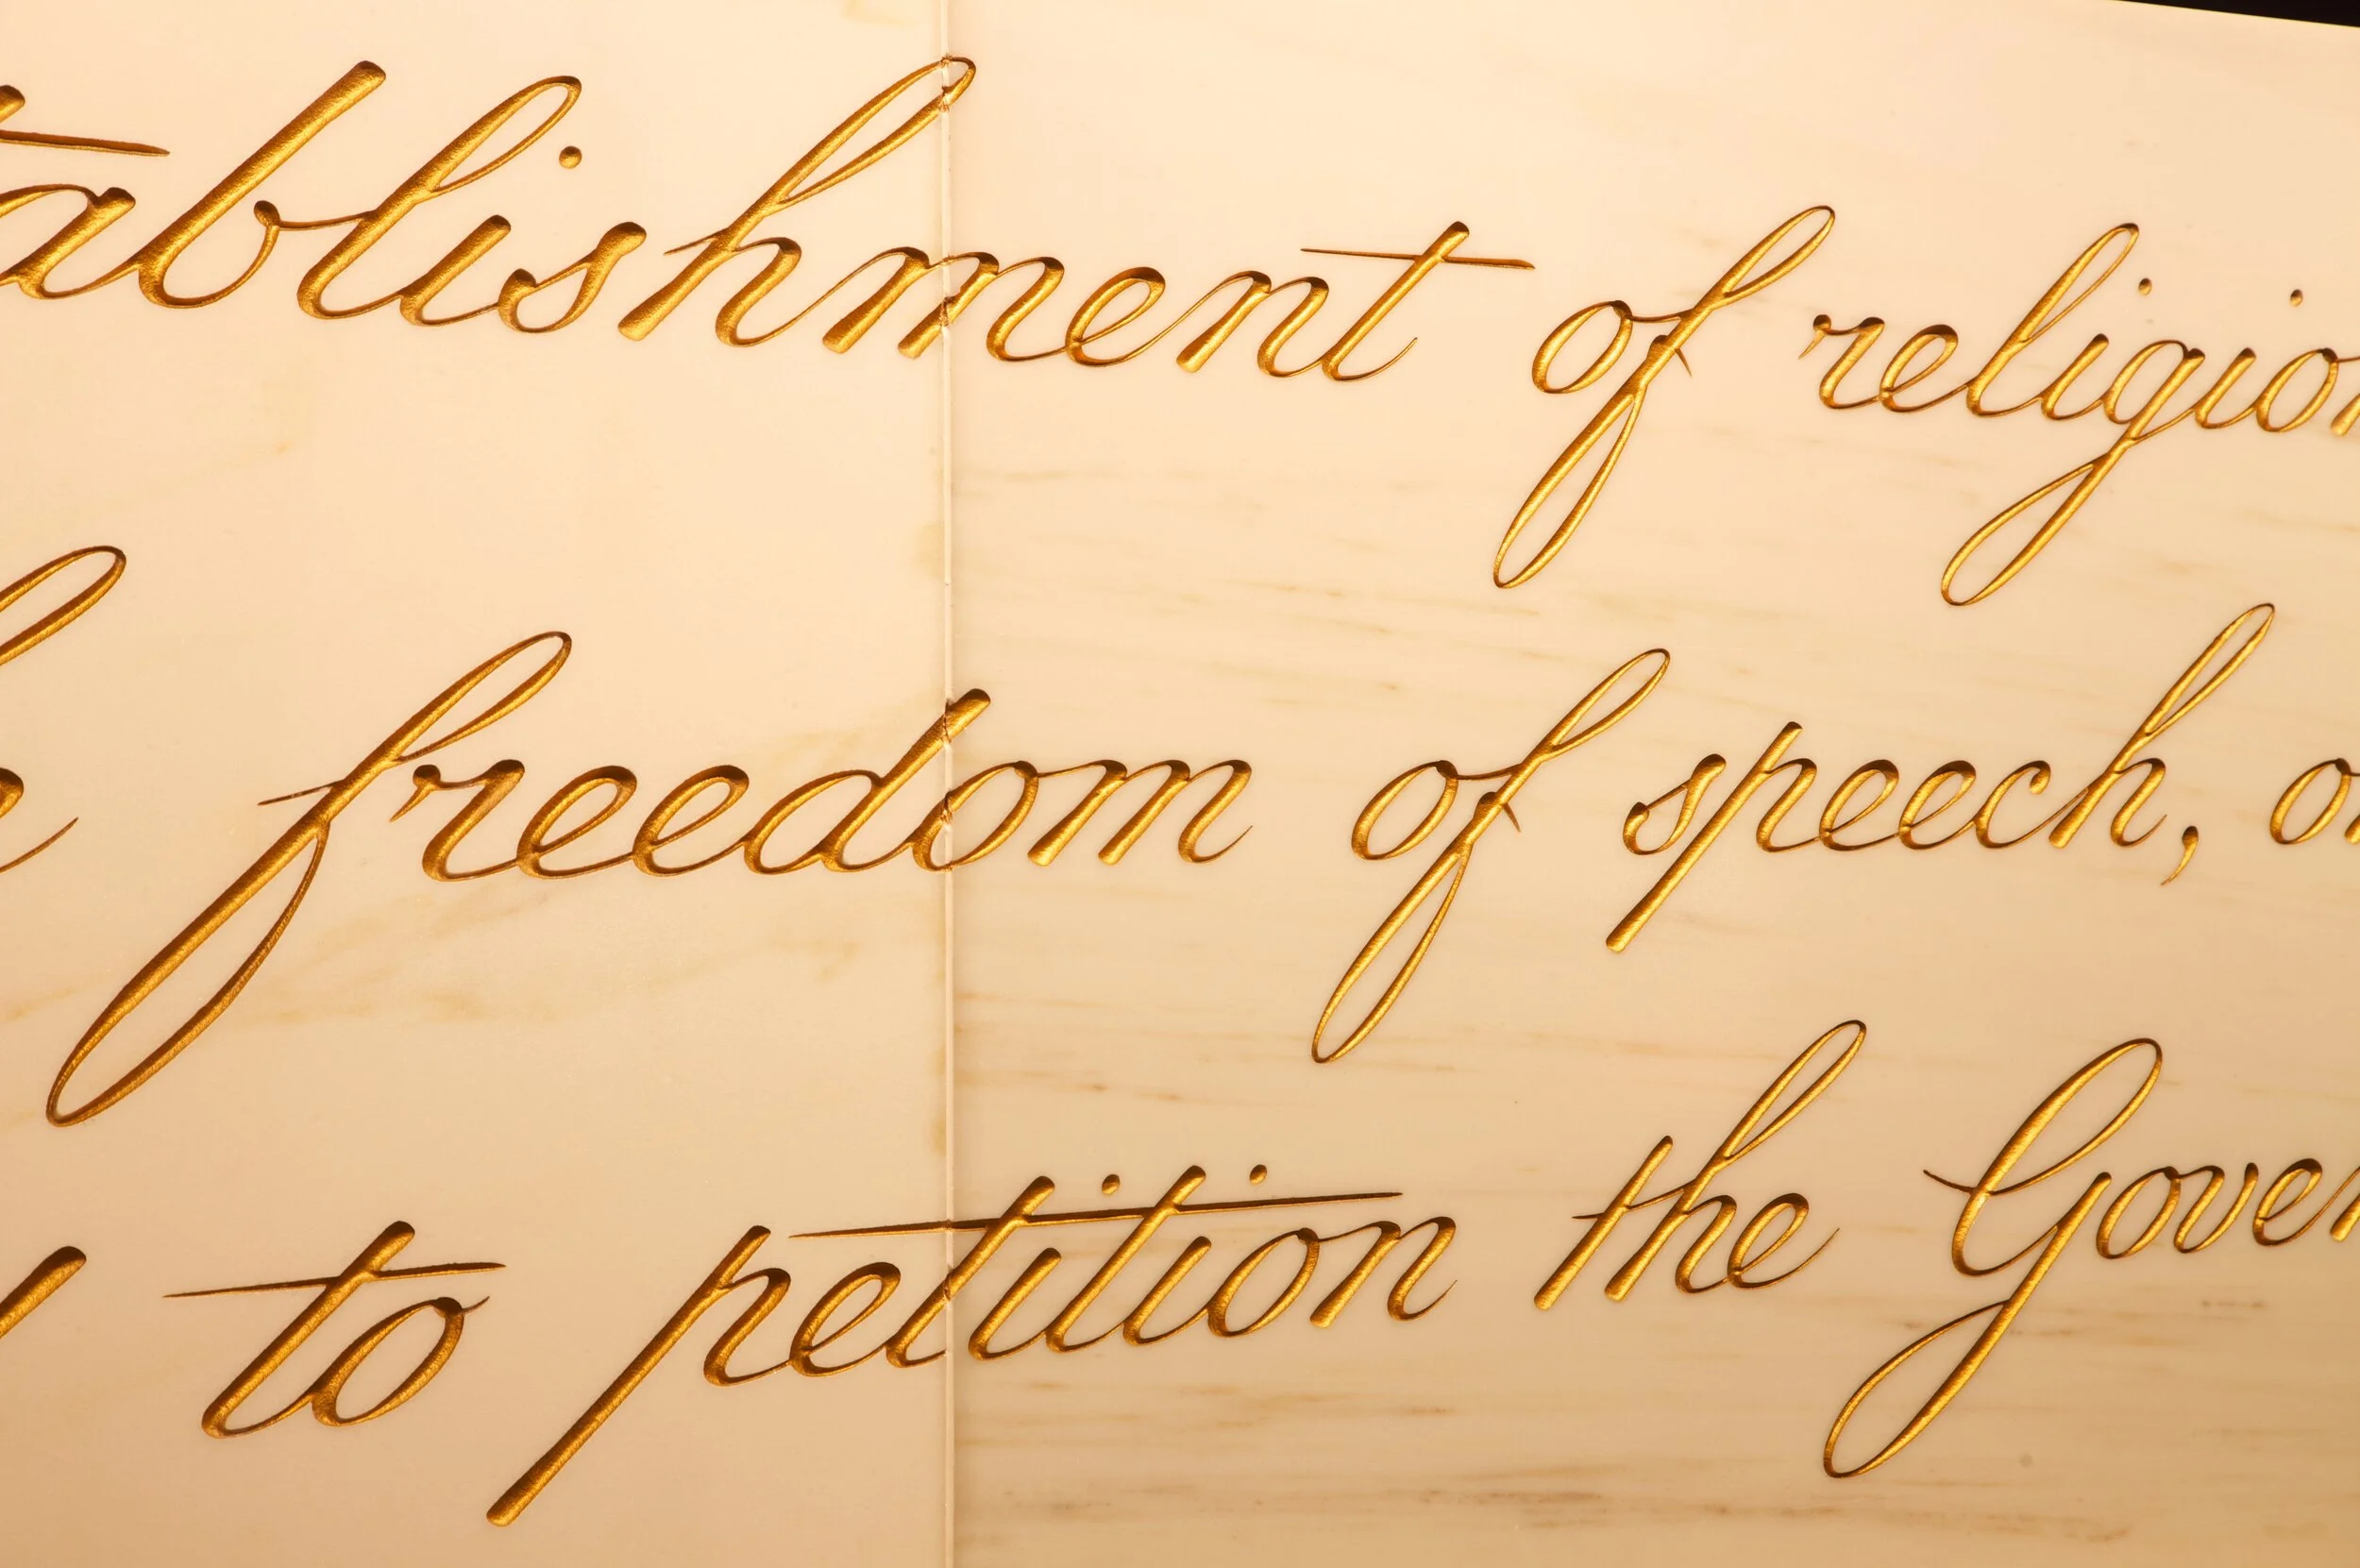 tablishment of religion
e freedom of speech, or
to petition the Gover